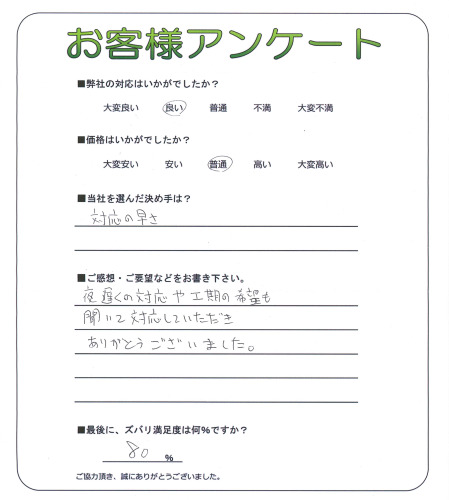 お客様アンケート
■弊社の対応はいかがでしたか？
大変良い 良い 普通 不満 大変不満
■価格はいかがでしたか？
大変安い 安い 普通 高い 大変高い
■当社を選んだ決め手は？
対応の早さ
■ご感想・ご要望などをお書き下さい。
夜遅くの対応や工期の希望も
聞いて対応していただき
ありがとうございました。
■最後に、ズバリ満足度は何%ですか？
80 %
ご協力頂き、誠にありがとうございました。